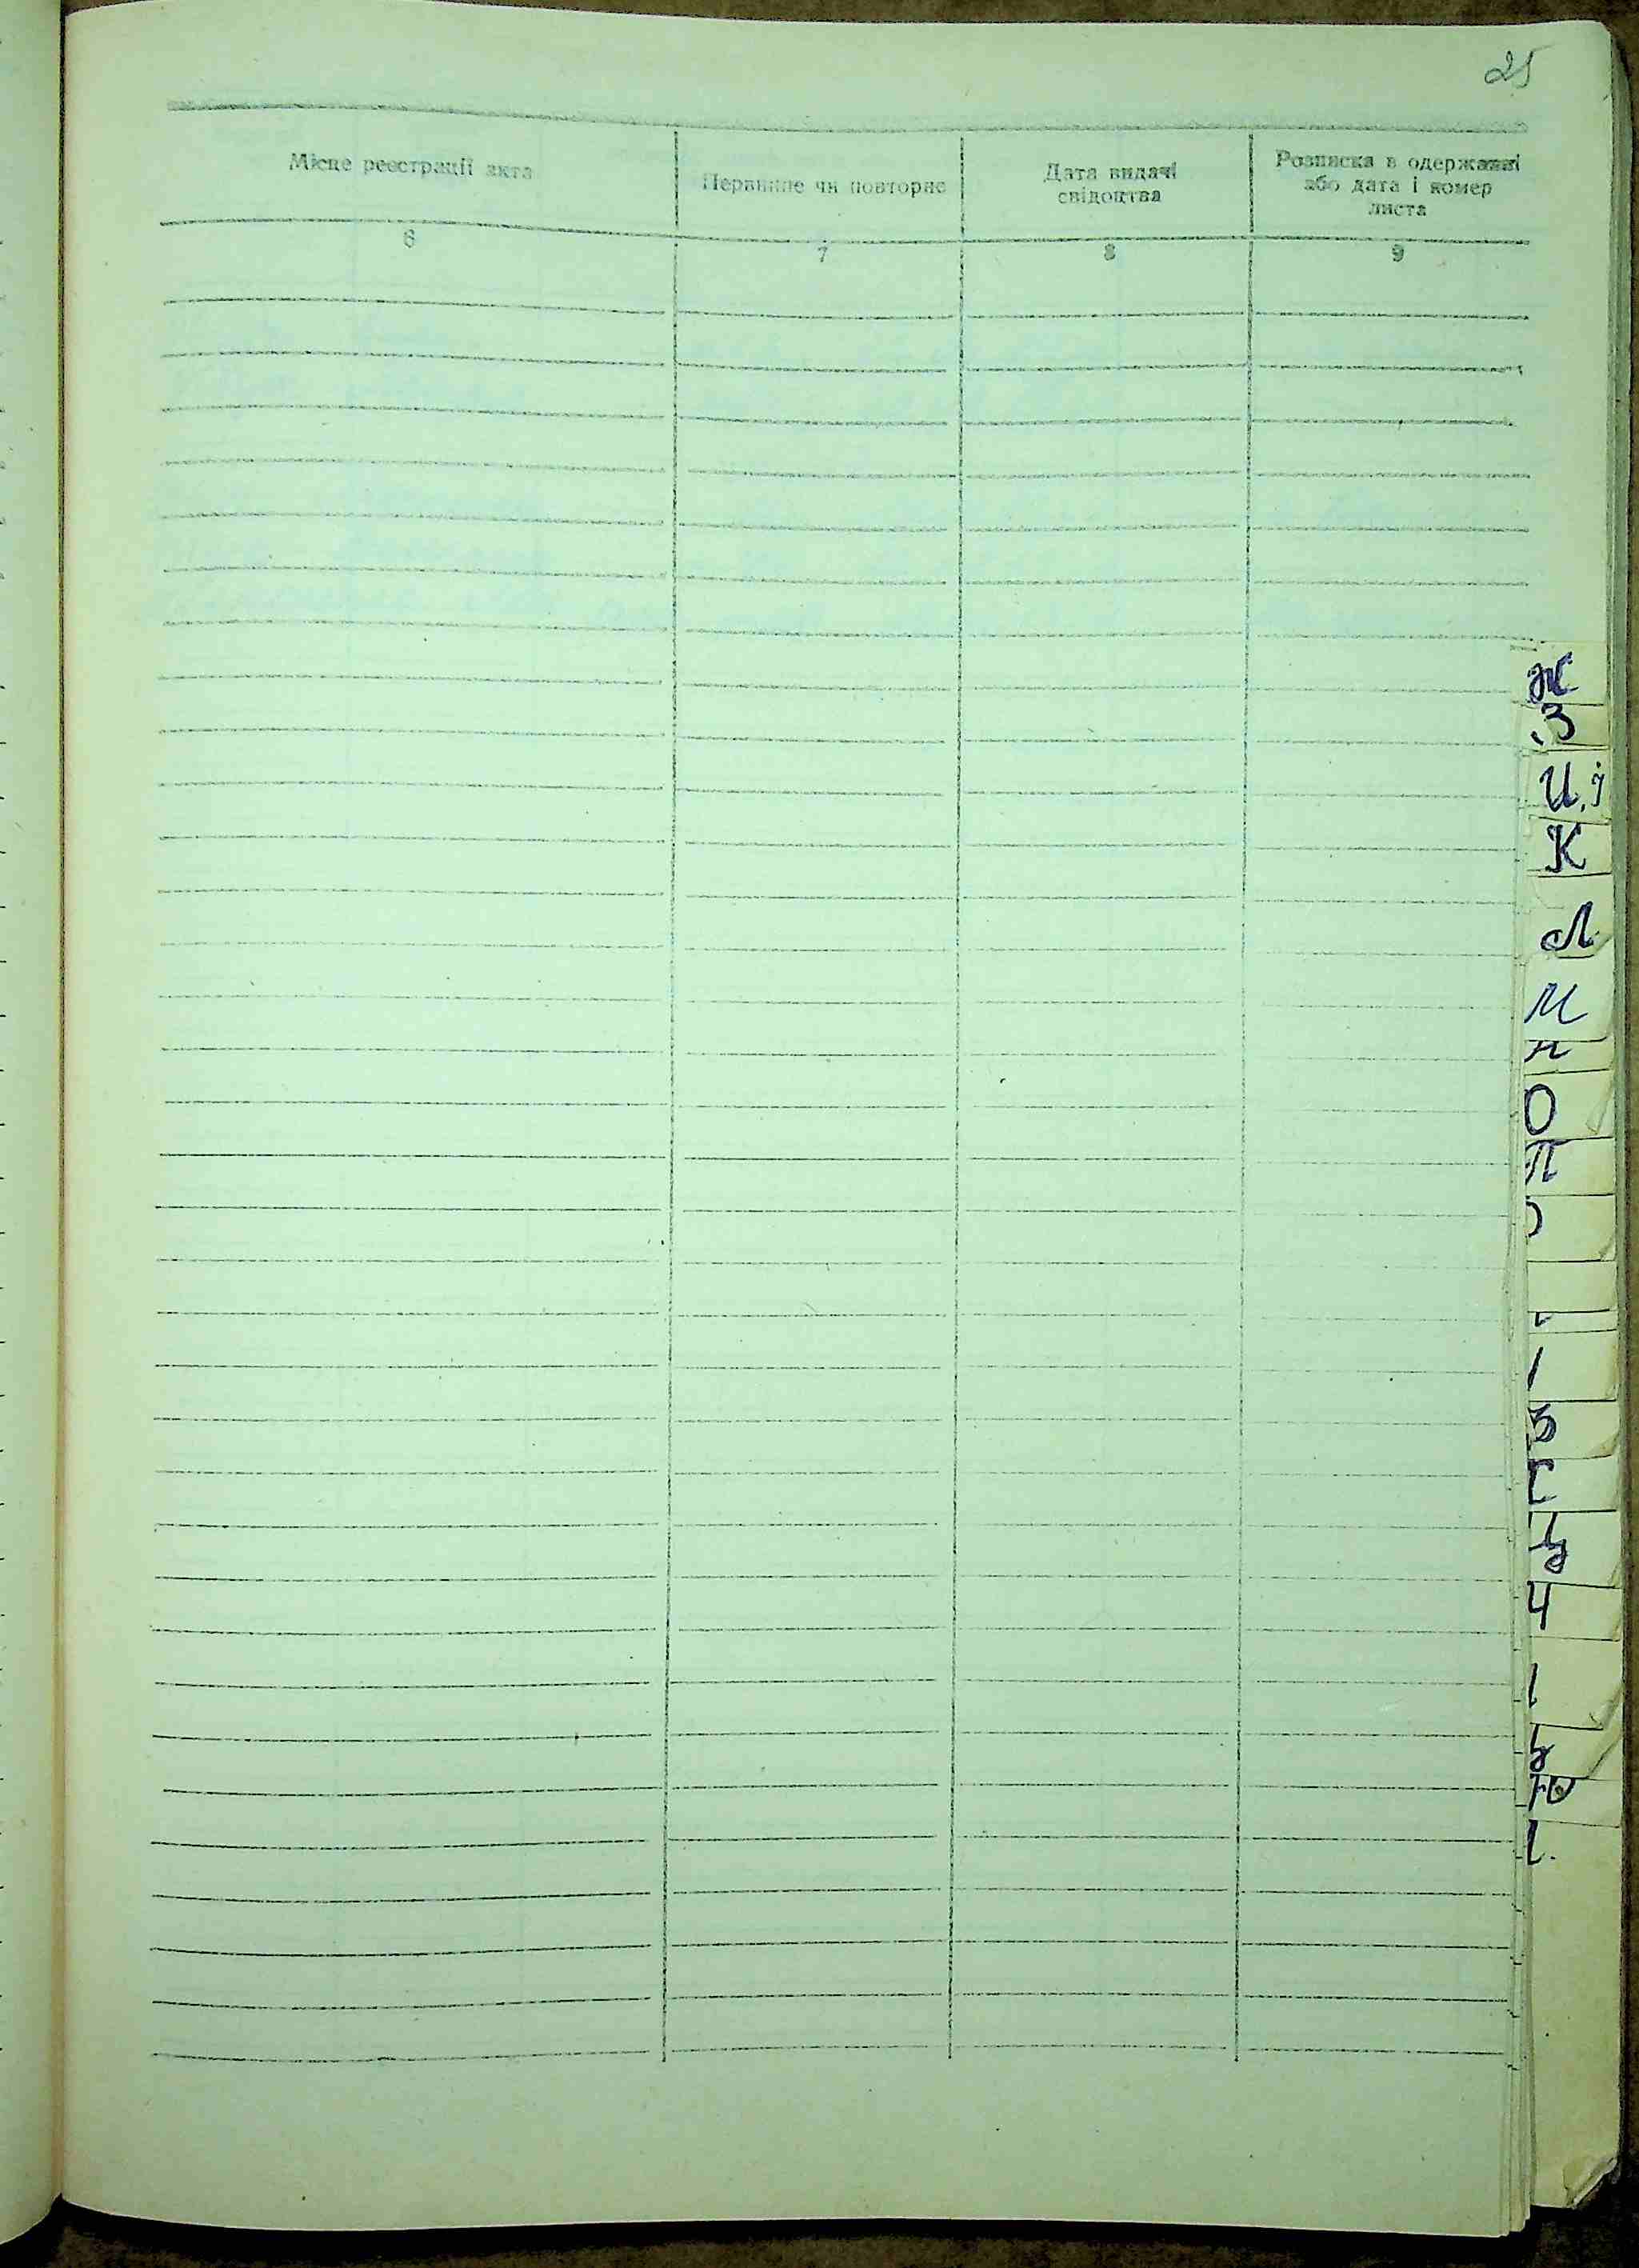 25
Місце реєстрації акта
Первинне чи повторне
Дата видачі
свідоцтва
Розписка в одержанні
або дата і номер
листа
6
7
8
9
Ж
З
И, і
К
Л
М
Н
О
П
Ч
Ю